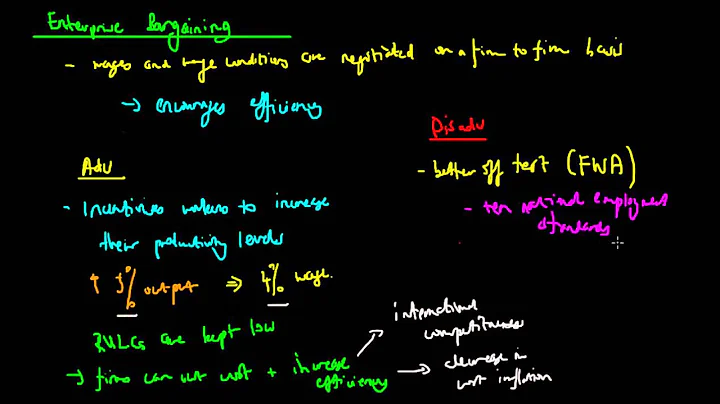 Enterprise Bargaining
- wages and wage conditions are negotiated on a firm to firm basis
→ encourages efficiency
Adv
- Incentivises workers to increase
their productivity levels
↑ 5% output ⇒ 4% wage.
RULCs are kept low
→ firms can cut cost + increase
efficiency
international
competitiveness
decrease in
cost inflation
Disadv
- better off test (FWA)
- ten national employment
standards